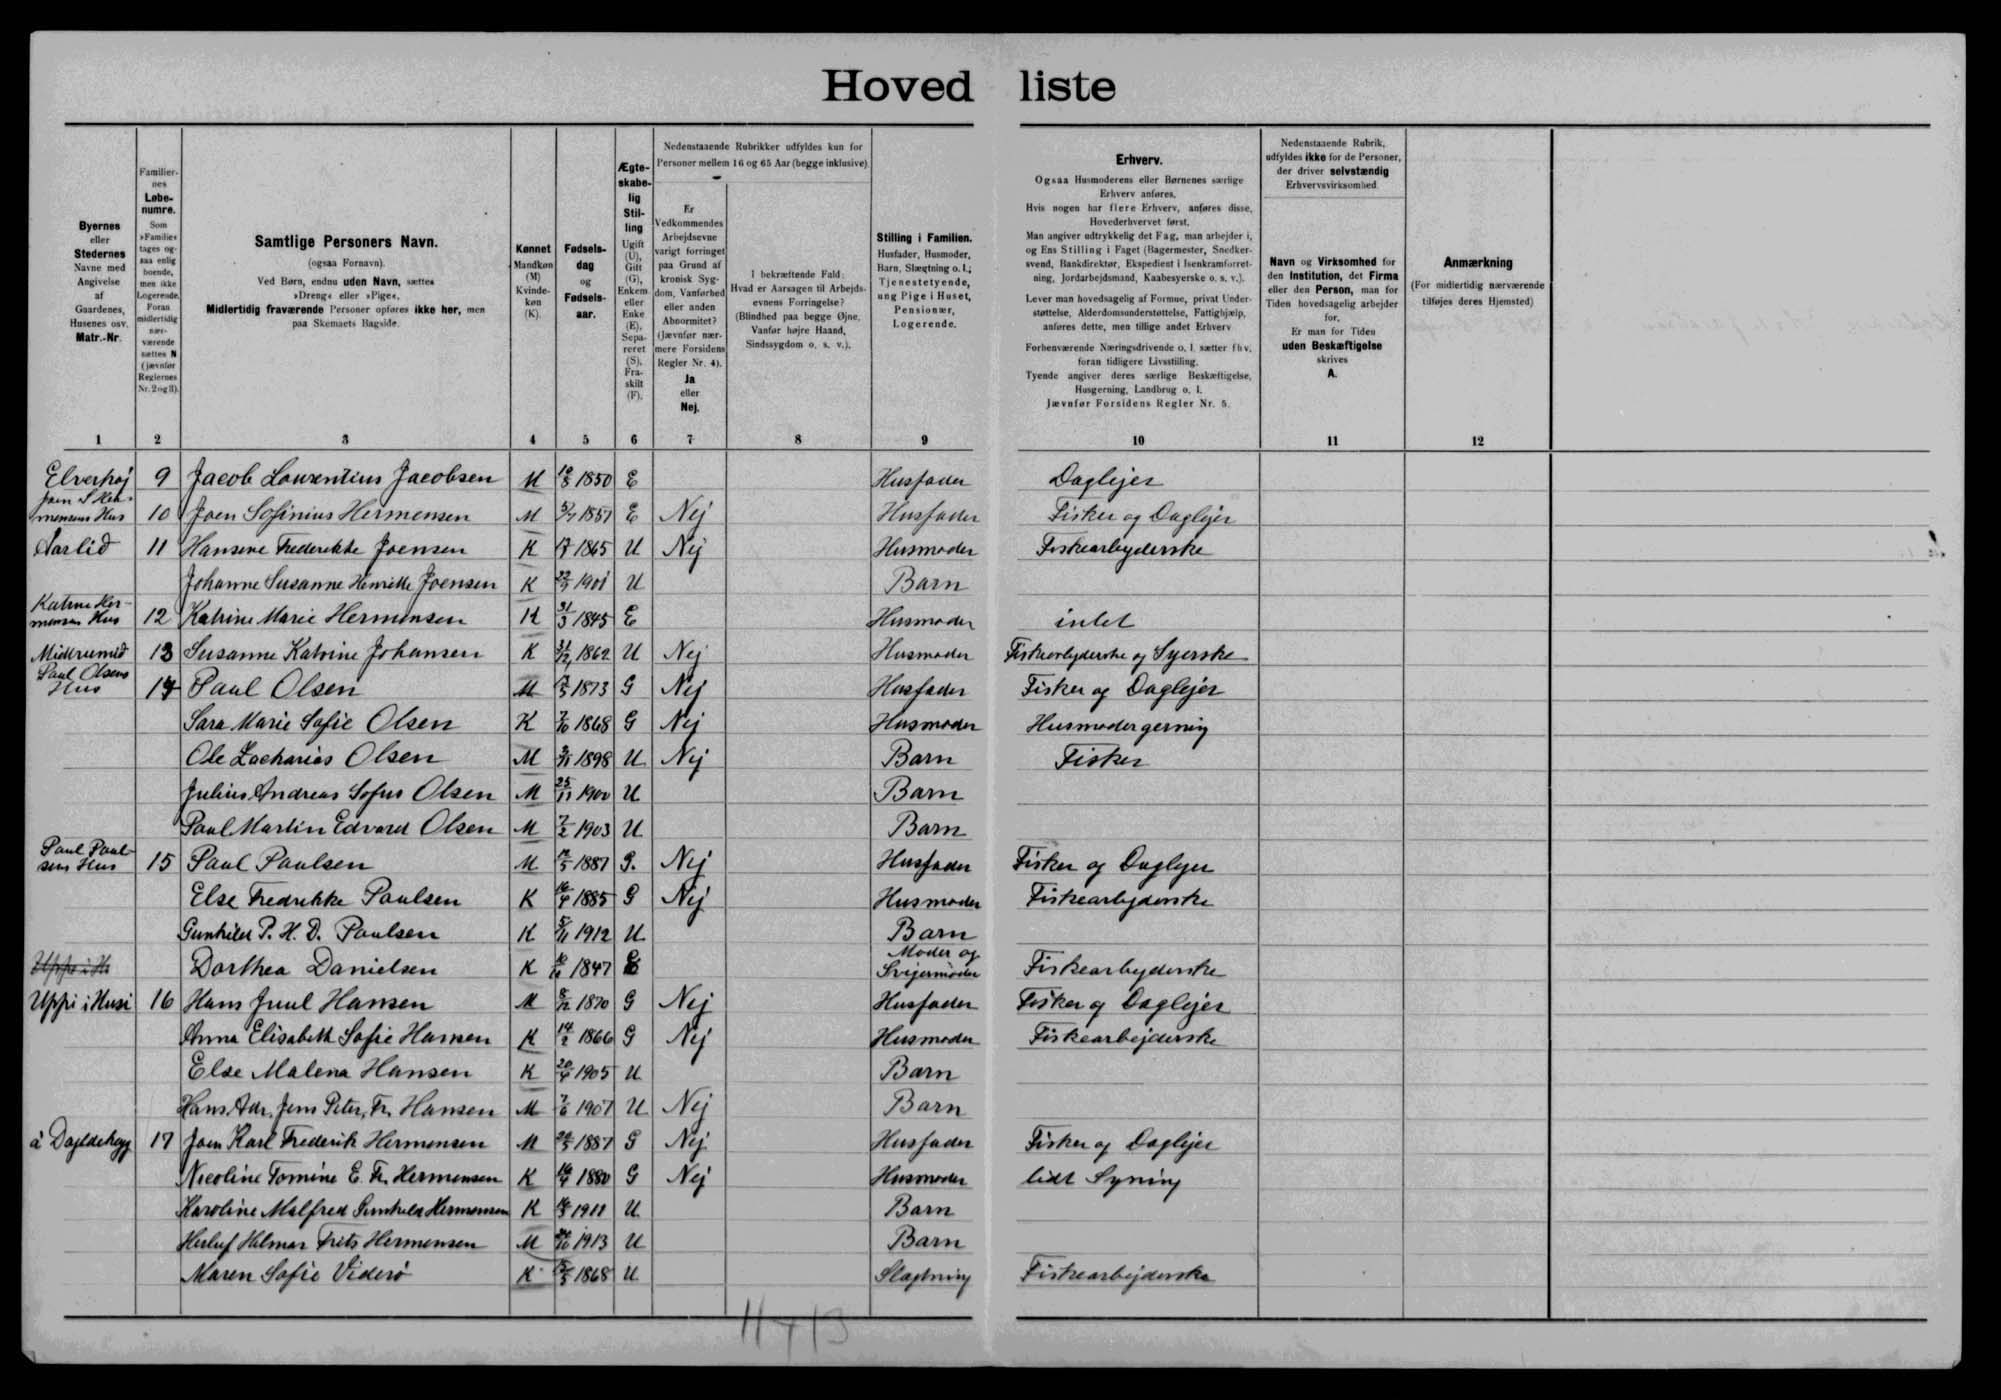 Hovedliste
Byernes
eller
Stedernes
Navne med
Angivelse
af
Gaardenes,
Husenes osv.
Matr.-Nr.
Familier-
nes
Løbe-
numre.
Som
»Familie«
tages og-
saa enlig
boende,
men ikke
Logerende.
Foran
midlertidig
nær-
værende
sættes N
(jævnfør
Reglernes
Nr. 2 og 3).
Samtlige Personers Navn.
(ogsaa Fornavn).
Ved Børn, endnu uden Navn, sættes
»Dreng« eller »Pige«.
Midlertidig fraværende Personer opføres ikke her, men
paa Skemaets Bagside.
Kønnet
Mandkøn
(M)
Kvinde-
køn
(K).
Fødsels-
dag
og
Fødsels-
aar.
Ægte-
skabe-
lig
Stil-
ling
Ugift
(U),
Gift
(G),
Enkem.
eller
Enke
(E),
Sepa-
reret
(S),
Fra-
skilt
(F).
Nedenstaaende Rubrikker udfyldes kun for
Personer mellem 16 og 65 Aar (begge inklusive)
Er
Vedkommendes
Arbejdsevne
varigt forringet
paa Grund af
kronisk Syg-
dom, Vanførhed
eller anden
Abnormitet?
(Jævnfør nær-
mere Forsidens
Regler Nr. 4).
Ja
eller
Nej.
I bekræftende Fald:
Hvad er Aarsagen til Arbejds-
evnens Forringelse?
(Blindhed paa begge Øjne,
Vanfør højre Haand,
Sindssygdom o. s. v.).
Stilling i Familien.
Husfader, Husmoder,
Barn, Slægtning o. l.;
Tjenestetyende,
ung Pige i Huset,
Pensionær,
Logerende.
Erhverv.
Ogsaa Husmoderens eller Børnenes særlige
Erhverv anføres.
Hvis nogen har flere Erhverv, anføres disse,
Hovederhvervet først.
Man angiver udtrykkelig det Fag, man arbejder i,
og Ens Stilling i Faget (Bagermester, Snedker-
svend, Bankdirektør, Ekspedient i Isenkramforret-
ning, Jordarbejdsmand, Kaabesyerske o. s. v.).
Lever man hovedsagelig af Formue, privat Under-
støttelse, Alderdomsunderstøttelse, Fattighjælp,
anføres dette, men tillige andet Erhverv
Forhenværende Næringsdrivende o. l. sætter fhv.
foran tidligere Livsstilling.
Tyende angiver deres særlige Beskæftigelse,
Husgerning, Landbrug o. l.
Jævnfør Forsidens Regler Nr. 5.
Nedenstaaende Rubrik,
udfyldes ikke for de Personer,
der driver selvstændig
Erhvervsvirksomhed
Navn og Virksomhed for
den Institution, det Firma
eller den Person, man for
Tiden hovedsagelig arbejder
for.
Er man for Tiden
uden Beskæftigelse
skrives
A.
Anmærkning
(For midlertidig nærværende
tilføjes deres Hjemsted)
1 2 3 4 5 6 7 8 9 10 11 12
Elverhøj 9 Jacob Laurentius Jacobsen M 1850 E Husfader Daglejer
Joen S Her-
mensens Hus 10 Joen Sofinius Hermensen M 1851 E Nej Husfader Fisker og Daglejer
11 Hansine Frederikke Joensen K 1865 U Nej Husmoder Fiskearbejderske
Johanne Susanne Henriette Joensen K 1901 U Barn
Katrine Her-
mensens Hus 12 Katrine Marie Hermensen K 31/3 1845 E Husmoder intet
13 Susanne Katrine Johansen K 1862 U Nej Husmoder Fiskearbejderske og Syerske
Paul Olsens
Hus 14 Paul Olsen M 1873 G Nej Husfader Fisker og Daglejer
Sara Marie Sofie Olsen K 7/10 1868 G Nej Husmoder Husmodergerning
Ole Zacharias Olsen M 1898 U Nej Barn Fisker
Julius Andreas Sofus Olsen M 25/11 1900 U Barn
Paul Martin Edvard Olsen M 7/2 1903 U Barn
Paul Paul-
sens Hus 15 Paul Paulsen M 1887 G. Nej Husfader Fisker og Daglejer
Else Fredrikke Paulsen K 16/4 1885 G Nej Husmoder Fiskearbejderske
Gunhild P. H. D. Paulsen K 5/11 1912 U Barn
Moder og
Uppi i H Dorthea Danielsen K 1847 E Svigermoder Fiskearbejderske
Uppi i Husi 16 Hans Juul Hansen M 8/12 1870 G Nej Husfader Fisker og Daglejer
Anna Elisabeth Sofie Hansen K 14/2 1866 G Nej Husmoder Fiskearbejderske
Else Malena Hansen K 20/4 1905 U Barn
Hans Adr. Jens Peter, Fr. Hansen M 7/6 1901 U Nej Barn
17 Joen Karl Frederik Hermensen M 1887 G Nej Husfader Fisker og Daglejer
Nicoline Tomine E. Fr. Hermensen K 1880 G Nej Husmoder lidt Syning
Karoline Malfred Gunhild Hermensen K 1911 U Barn
Herluf Hilmar Frits Hermensen M 1913 U Barn
Maren Sofie Viderö K 1868 U Slægtning Fiskearbejderske
11 + 13